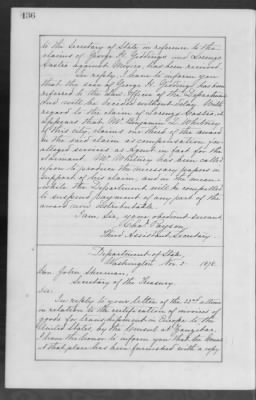 436
to the Secretary of State in reference to the
claims of George H. Giddings and Lorenzo
Castro against Mexico, has been received.
In reply, I have to inform you
that the case of George H. Giddings has been
referred to the Law Office of the Department
and will be decided without delay. With
regard to the claim of Lorenzo Castro, it
appears that Mr. Benjamin F. Whitney
of this city, claims one third of the award
in the said claim as compensation for
alleged services as Agent in fact for the
claimant. Mr. Whitney has been called
upon to produce the necessary papers in
support of his claim, and in the mean-
while the Department will be compelled
to suspend payment of any part of the
award now distributable.
I am, Sir, your obedient servant
Chas Payson
Third Assistant Secretary
Department of State,
Washington Nov. 1878.
Hon. John Sherman,
Secretary of the Treasury.
Sir:
In reply to your letter of the 22nd ultimo
in relation to the certification of invoices of
goods for transshipment in Europe to the
United States, by the Consul at Zanzibar,
I have the honor to inform you that the Consul
at that place has been furnished with a copy